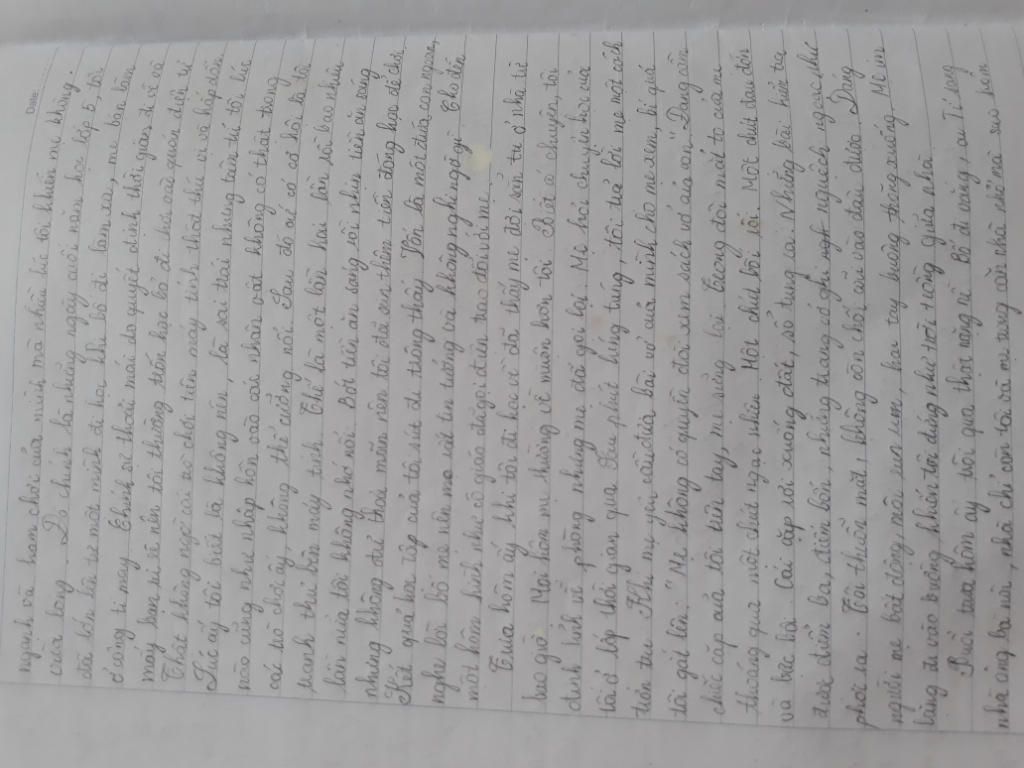 Date:
ngạnh và ham chơi của mình mà nhiều lúc tôi khiến mẹ không
vui lòng. Đó chính là những ngày cuối năm học lớp 5, tôi
đã lớn rồi tự một mình đi học. Khi bố đi làm xa, mẹ bận làm
ở công ti may. Chính sự thoải mái do quyết định thời gian đi về và
máy bạn rủ rê nên tôi thường trốn học bổ đi chơi vài quán điện tử
Thật không ngờ cái trò chơi trên máy tính thật thú vị và hấp dẫn
Lúc ấy tôi biết là không nên, là sai trái nhưng tâm trí tôi lúc
nào cũng như nhập hồn vào các nhân vật không có thật trong
các trò chơi ấy, không thể cưỡng nổi. Sau đó cứ có cơ hội là tôi
tranh thủ bấm máy tính. Thế là một lần, hai lần rồi bao nhiêu
lần nữa tôi không nhớ nổi. Bớt tiền ăn sáng rồi nhịn tiền ăn cũng
nhưng không đủ thỏa mãn nên tôi đã xin thêm tiền đóng học để chơi.
Kết quả học tập của tôi sút đi trông thấy. Vốn là một đứa con ngoan,
nghe lời bố mẹ nên mẹ rất tin tưởng và không nghi ngờ gì. Cho đến
một hôm hình như cô giáo đã gọi điện trao đổi với mẹ.
Trưa hôm ấy khi tôi đi học về đã thấy mẹ đợi sẵn tự ở nhà từ
bao giờ. Mọi hôm mẹ thường về muộn hơn tôi. Biết có chuyện, tôi
định lỉnh về phòng nhưng mẹ đã gọi lại. Mẹ hỏi chuyện học của
tôi ở lớp thời gian qua. Sau phút lúng túng, tôi trả lời mẹ một cách
tự tin. Khi mẹ yêu cầu đưa bài vở của mình cho mẹ xem, bí quá
tôi gắt lên. "Mẹ không có quyền đòi xem sách vở của con". Đang cầm
chiếc cặp của tôi trên tay, mẹ sững lại. Trong đôi mắt to của mẹ
thoáng qua một chút ngạc nhiên. Một chút bối rối. Một chút đau đớn
và bực bội. Cái cặp rơi xuống đất, sổ tung ra. Những bài kiểm tra
dưới điểm ba, điểm bốn, những trang vở ghi nguệch ngoạc, chỉ
phơi ra. Tôi thuỗn mặt, không còn chối cãi vào đâu được. Dáng
người mẹ bất động, môi run run, hai tay buông thõng xuống. Mẹ im
lặng đi vào buồng khiến tôi đứng như trời trồng giữa nhà.
Buổi trưa hôm ấy trôi qua thật nặng nề. Bố đi vắng, cu Tí sang
nhà ông bà nội, nhà chỉ còn tôi và mẹ trong căn nhà nhỏ mà sao